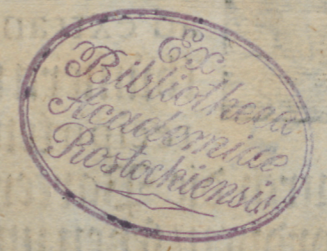 Ex
Bibliotheca
Academiae
Rostockiensis.